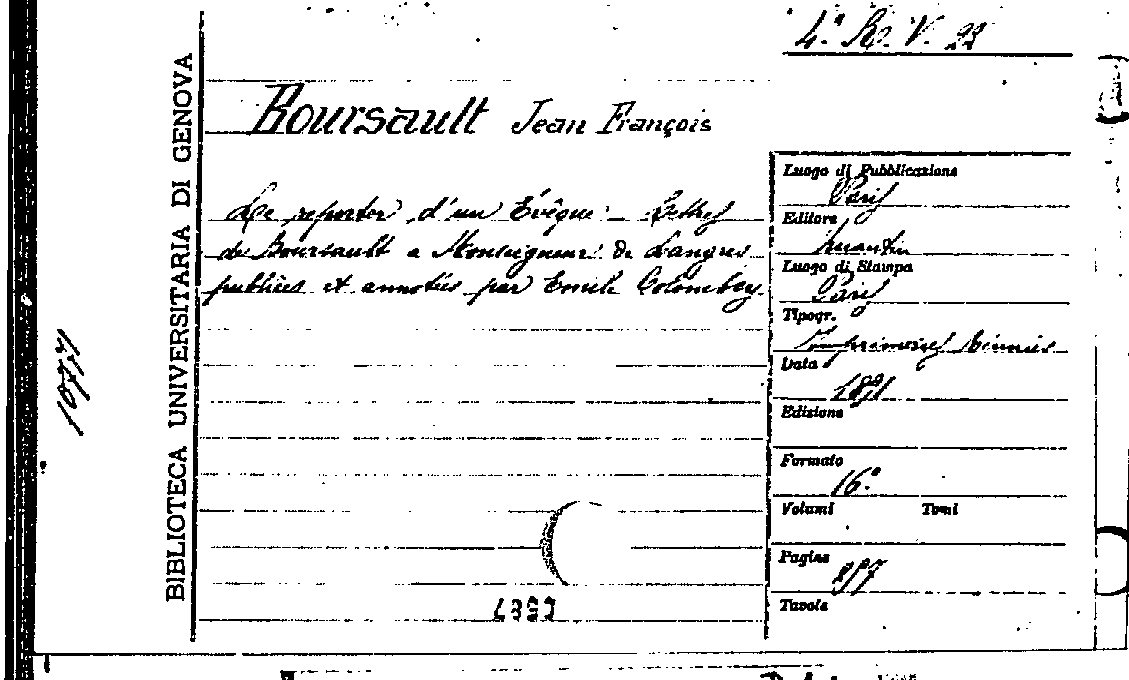 4.ª R. V. 22
BIBLIOTECA UNIVERSITARIA DI GENOVA
Boursault Jean François
Le reporter d'un Évêque: Lettres
de Boursault a Monseigneur de Langres
publiées et annotées par Emile Colombey
Luogo di Pubblicazione
Paris
Editore
Quantin
Luogo di Stampa
Paris
Tipogr.
Imprimeries Réunies
Data
1891
Edizione
Formato
16.º
Volumi Tomi
Pagine
Tavole